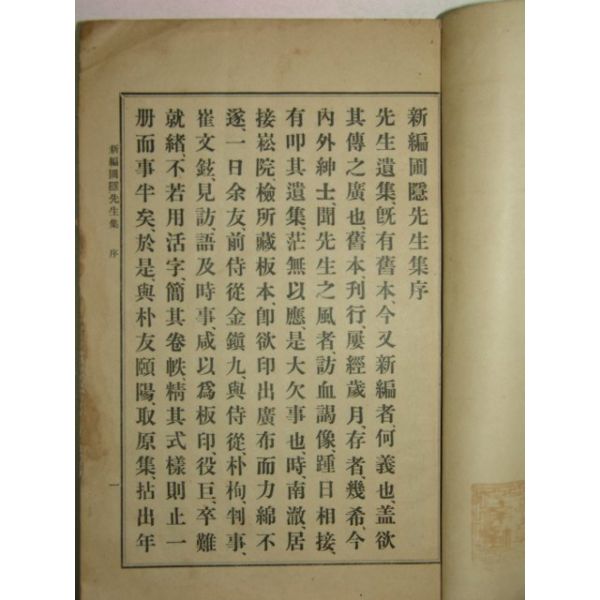 新編圃隱先生集序
先生遺集、旣有舊本、今又新編者、何義也、盖欲
其傳之廣也、舊本、刊行、屢經歲月、存者、幾希、今
內外紳士、聞先生之風者、訪血謁像、踵日相接、
有叩其遺集、茫無以應、是大欠事也、時、南澈、居
接崧院、檢所藏板本、卽欲印出廣布而力綿不
遂、一日余友、前侍從金鎭九、與侍從、朴栒、判事、
崔文鉉、見訪、語及時事、咸以爲板印、役巨、卒難
就緖、不若用活字、簡其卷帙、精其式樣則止一
册而事半矣、於是與朴友頤陽、取原集、拈出年
新編圃隱先生集 序
一